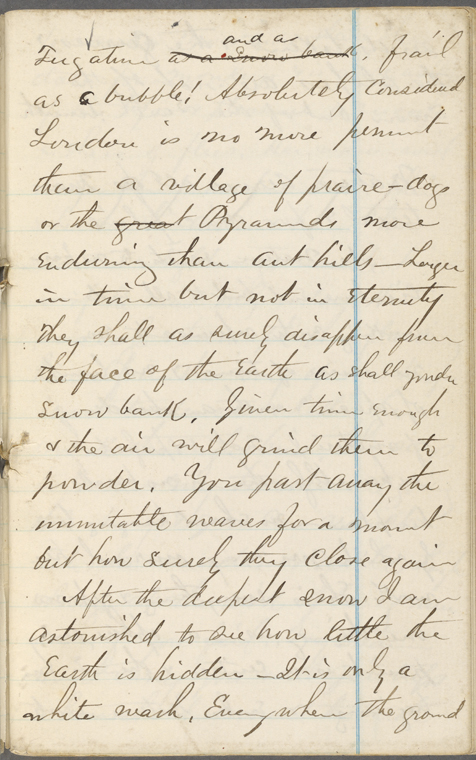 Fugative as a snow bank, and as frail
as a bubble! Absolutely Considered
London is no more permnt
than a village of praire-dogs
or the great Pyramids more
Enduring than ant hills—Longer
in time but not in Eternity
They shall as surely disappear from
the face of the Earth as shall yonder
snow bank. Given time enough
& the air will grind them to
powder. You part away the
immutable waves for a momnt
but how surely they close again
After the deepest snow I am
astonished to see how little the
Earth is hidden—It is only a
white wash. Everywhere the ground